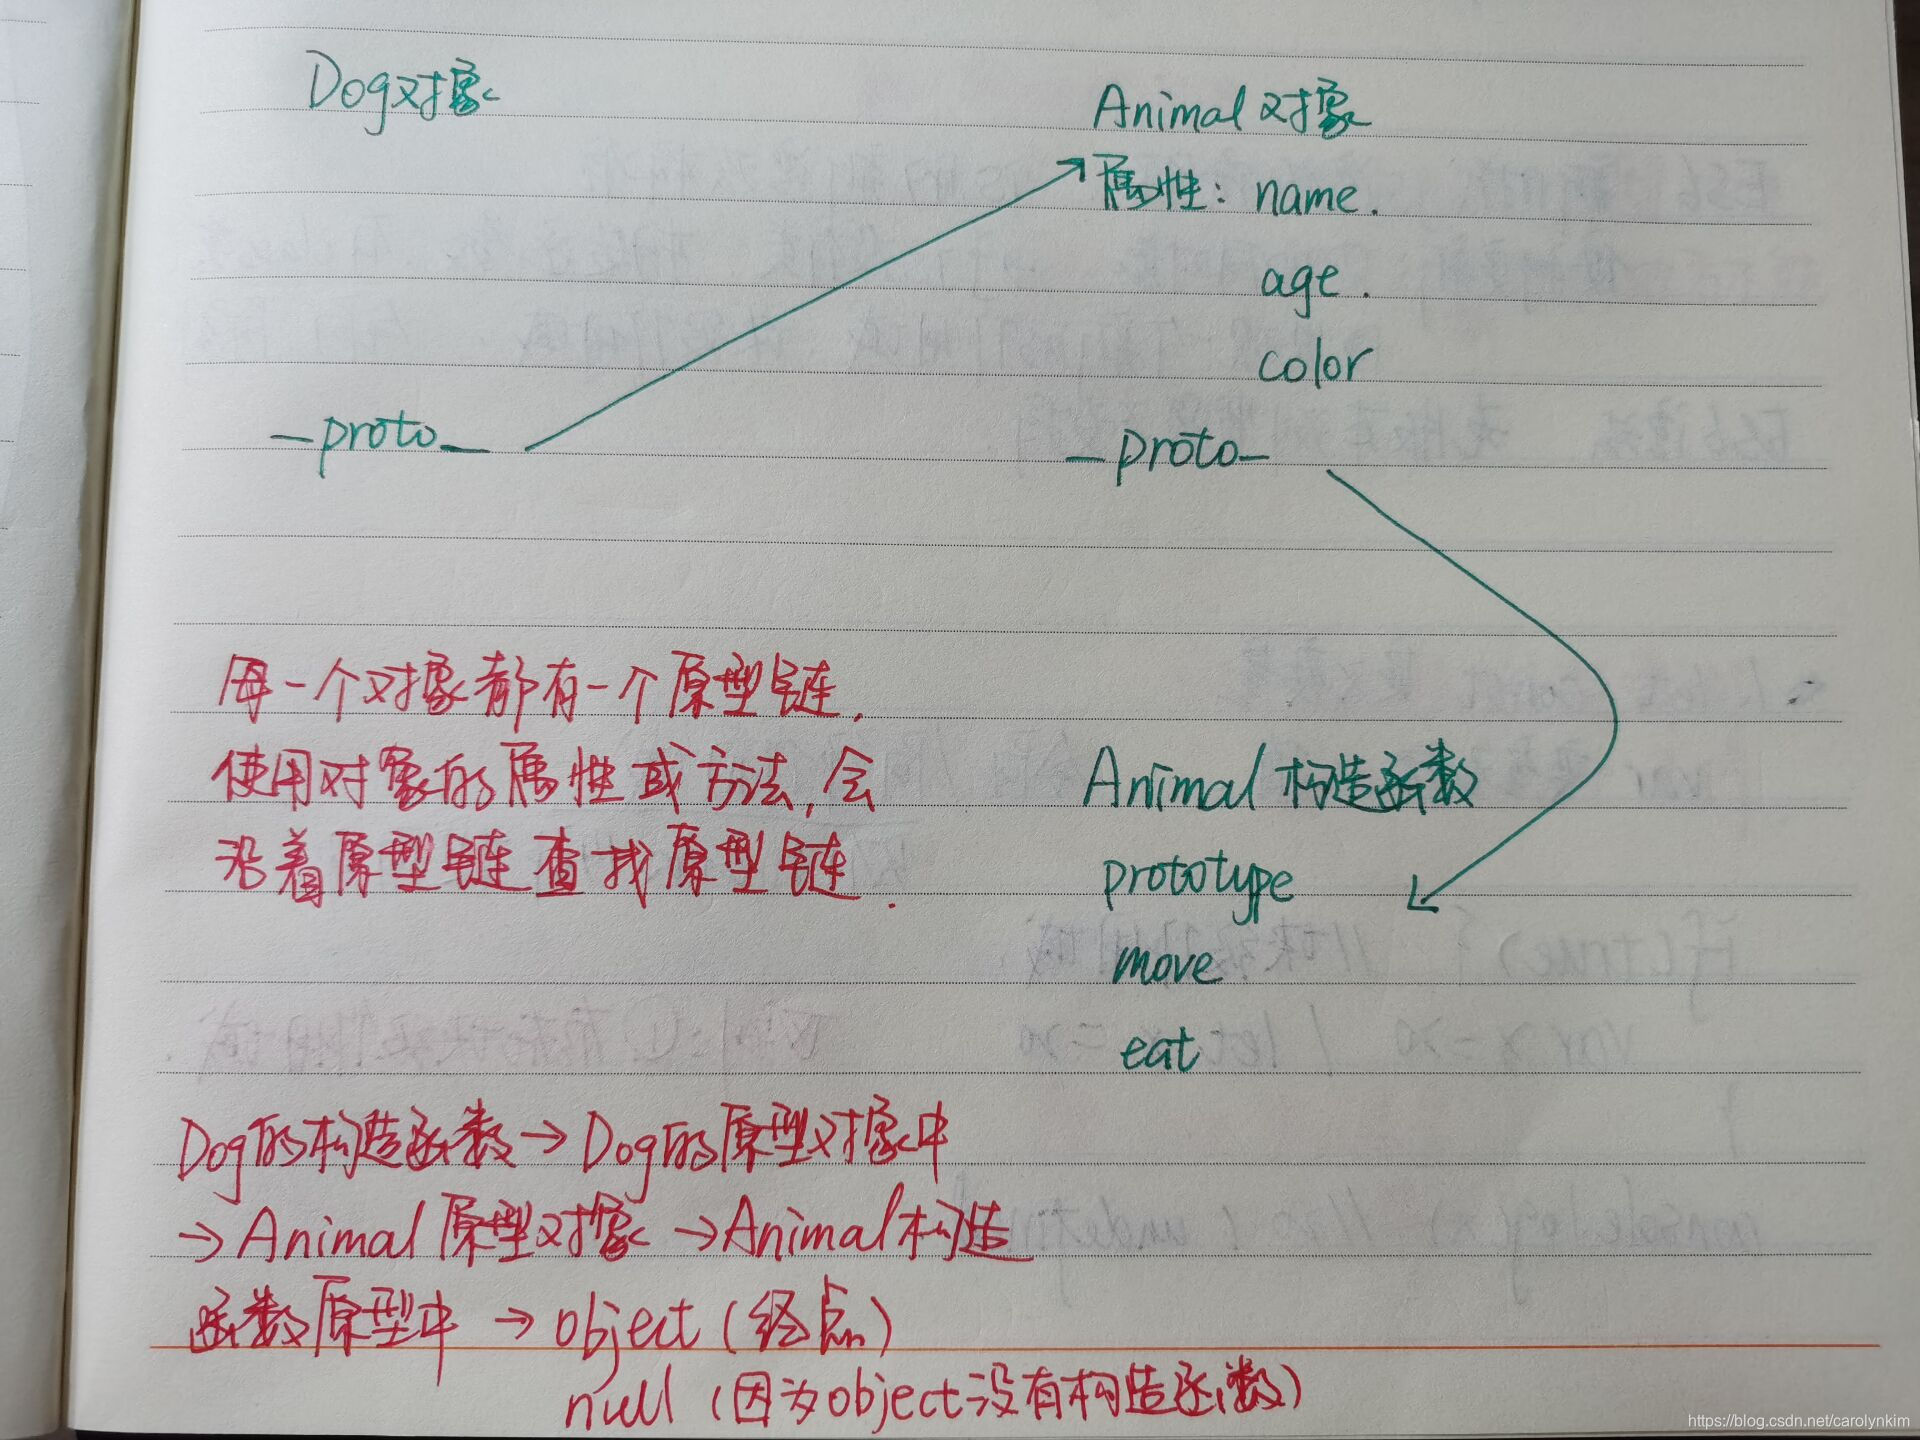 Dog对象
Animal 对象
属性: name.
age.
color
_proto_
_proto_
每一个对象都有一个原型链.
使用对象的属性或方法,会
沿着原型链查找原型链.
Animal 构造函数
prototype
move
eat
Dog的构造函数→Dog的原型对象中
→Animal 原型对象→Animal构造
函数原型中 → object (终点)
null (因为object没有构造函数)
https://blog.csdn.net/carolynkim